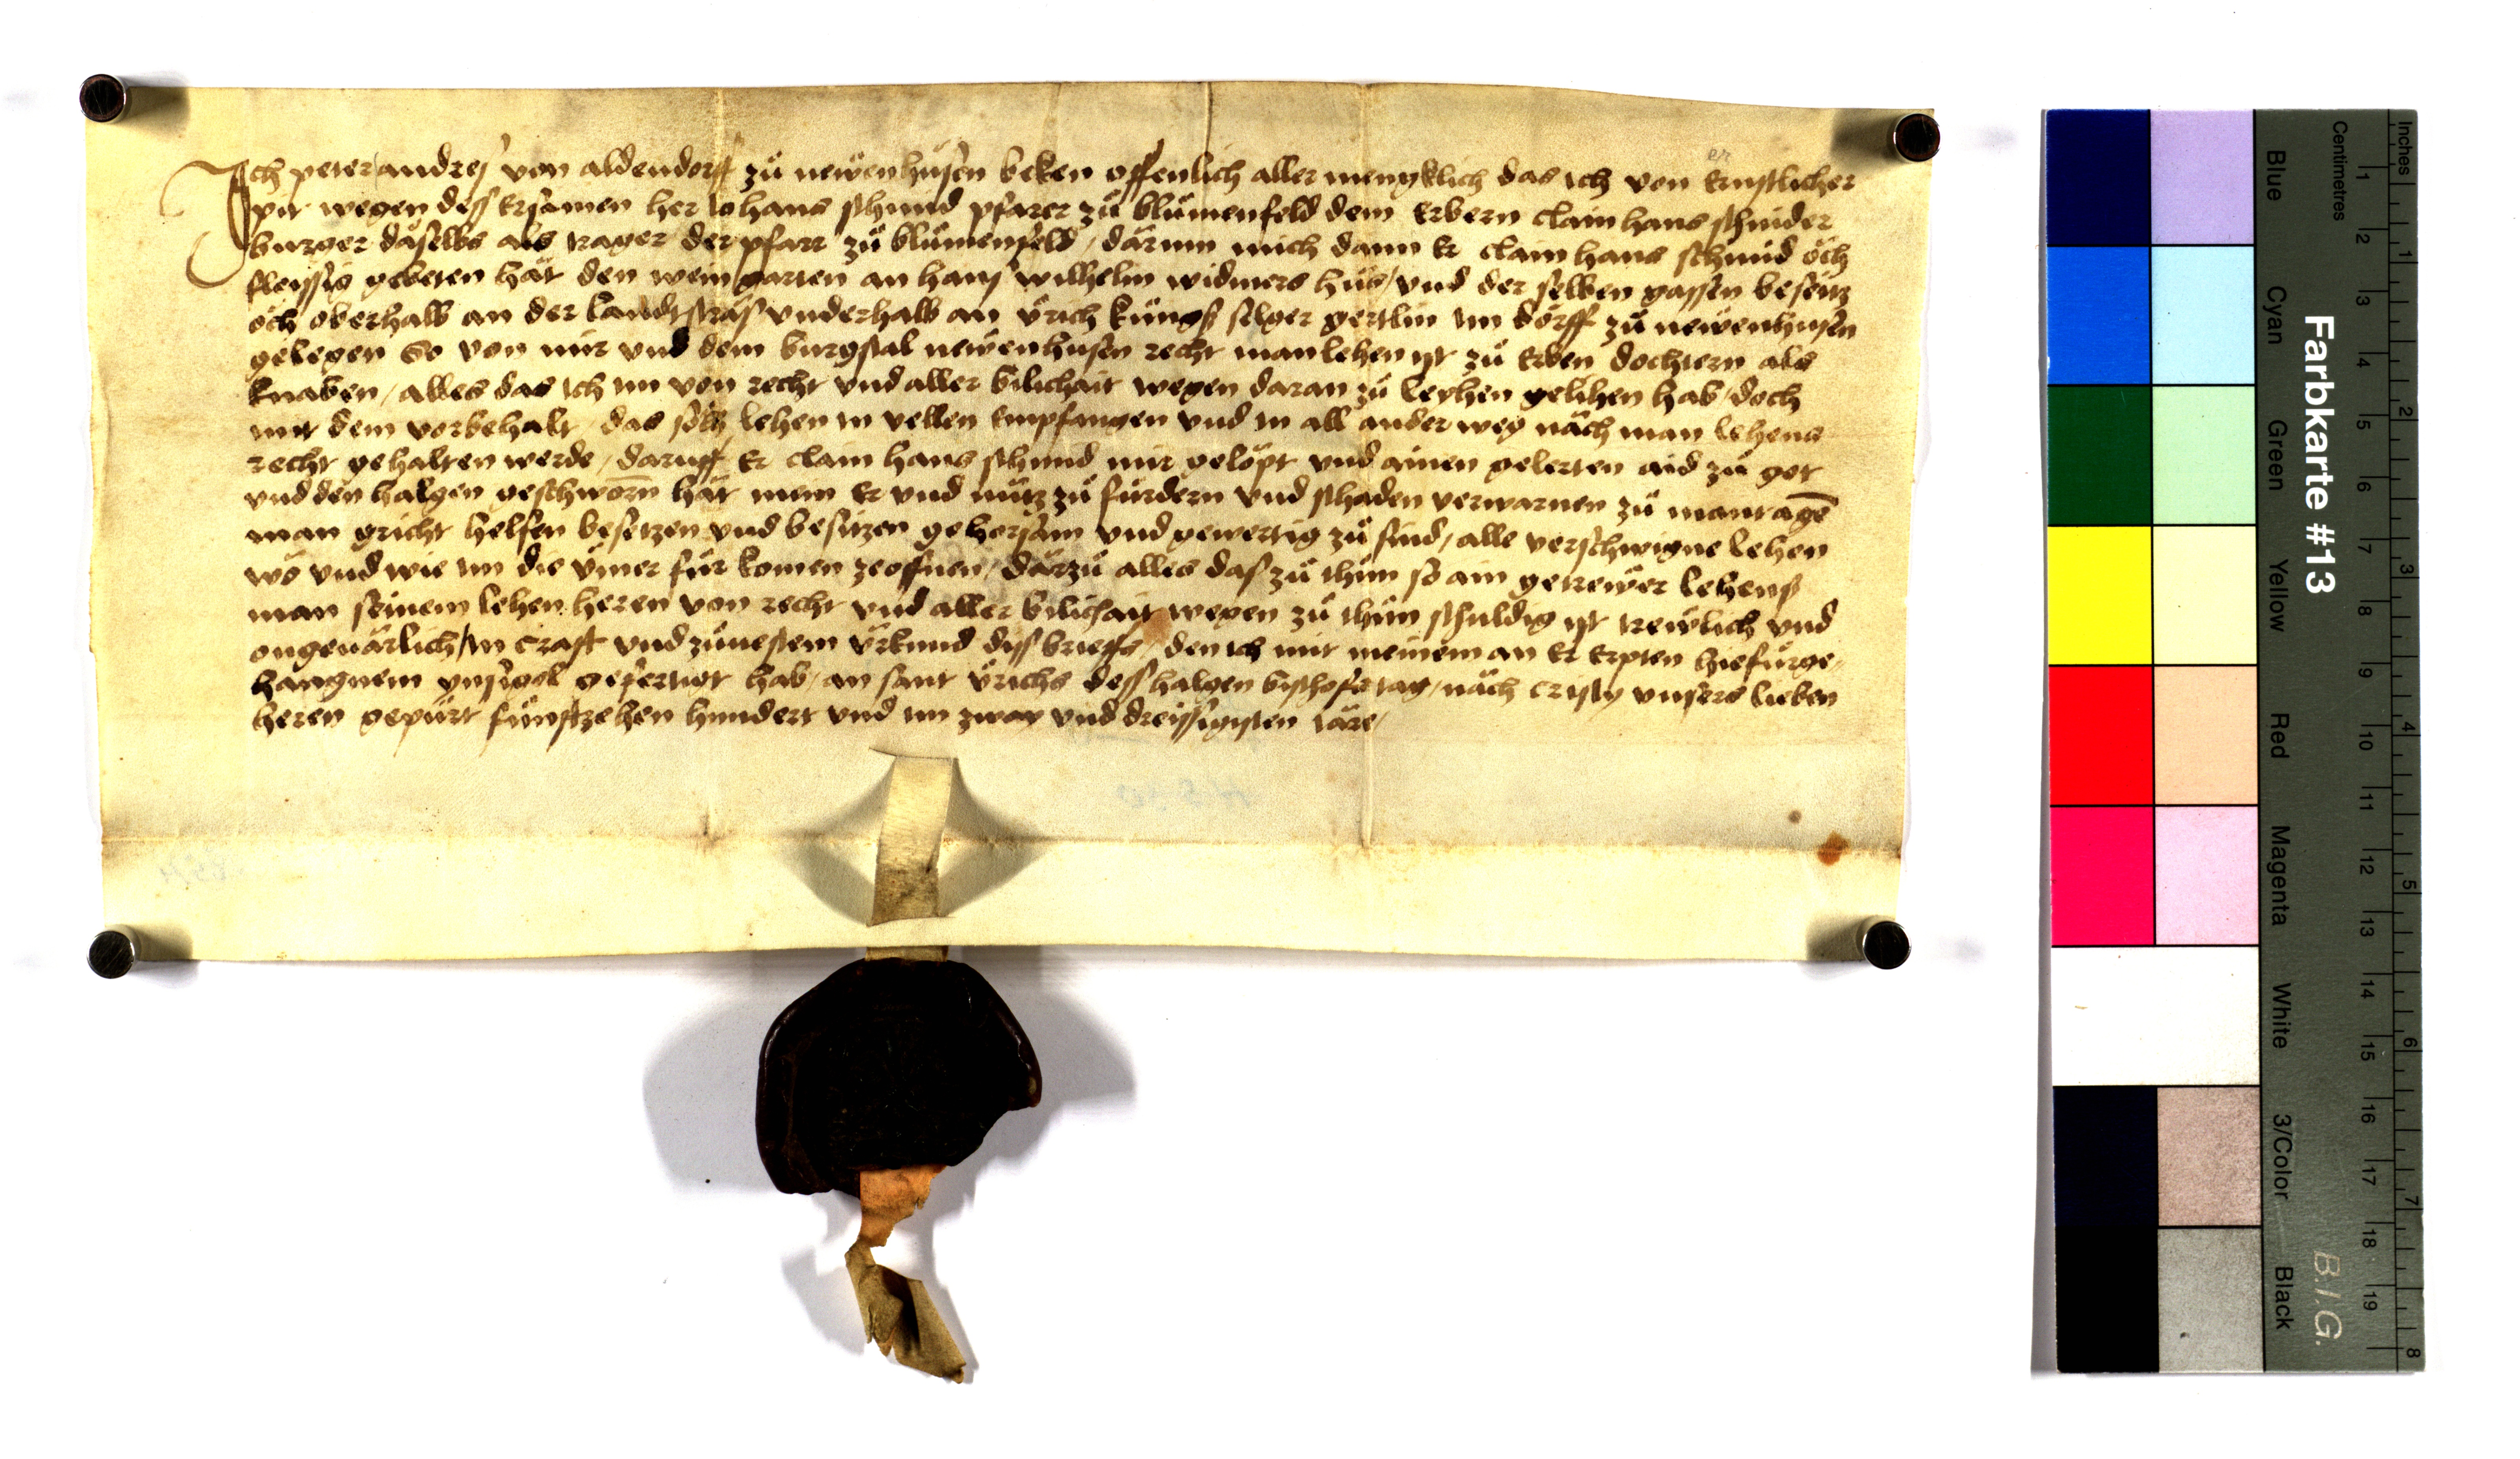 Ich peter andres von aldendorff zů newenhusen beken offenlich aller menyklich das ich von ernstlicher
er
pit wegen dess ersamen her iohans schmid pfarer zů blůmenfeld dem erbern clainhans schnider
burger daselbs als trager der pfarr zů blůmenfeld, darum mich dann er clainhans schmid öch
fleyssig gebeten hat den wein garten an hans wilhelm widmers hus, vnd der selben gassen besetz
öch oberhalb an der landtstras vnderhalb an vrich küngs selger gertlin im dorff zů newenhusen
gelegen so von mir vnd dem burgstal newenhusen recht manlehen yst zů erben dochtern als
knaben, alles das ich im von recht vnd aller bilichait wegen daran zů leyhen gelihen hab, doch
mit dem vorbehalt, das sölch lehen in vellen empfangen vnd in all ander weg nach man lehens
recht gehalten werde, daruff er clain hans schmid mir gelopt vnd ainen gelerten aid zů got
vnd den halgen geschworn hat mein er vnd nutz zů fürdern vnd schaden verwarnen zů mantagē
man gricht helfen besetzen vnd besitzen gehorsam vnd gewertig zů sind, alle verschwigne lehen
wo vnd wie im die ymer für komen zeoffnen, darzů alles das zů thůn so ain getrewer lehens
man seinem lehen heren von recht vnd aller bilichait wegen zů thůn schuldig yst trewlich vnd
ongeuarlich, in craft vnd zůuestem vrkund dyss brieffs, den ich mit meinem an er erpten hiefürge,
hangnem ynsigel gefertigt hab, an sant vrichs dess halgen bischofs tag, nach cristy vnsers lieben
heren gepurt fünftzehen hundert vnd im zway vnd dreissigisten iare,
Farbkarte #13
B.I.G.
Centimetres
Inches
Blue
Cyan
Green
Yellow
Red
Magenta
White
3/Color
Black
1 2 3 4 5 6 7 8 9 10 11 12 13 14 15 16 17 18 19
1 2 3 4 5 6 7 8